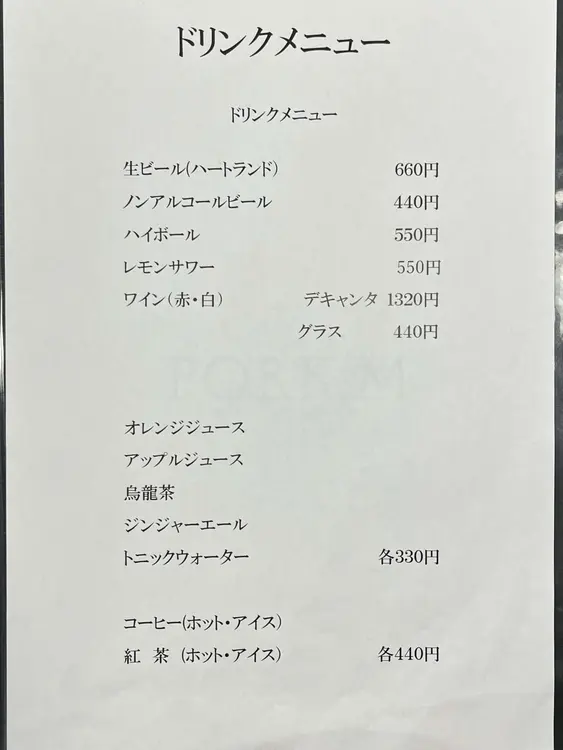 ドリンクメニュー
ドリンクメニュー
生ビール(ハートランド) 660円
ノンアルコールビール 440円
ハイボール 550円
レモンサワー 550円
ワイン(赤・白) デキャンタ 1320円
グラス 440円
オレンジジュース
アップルジュース
烏龍茶
ジンジャーエール
トニックウォーター 各330円
コーヒー(ホット・アイス)
紅 茶 (ホット・アイス) 各440円